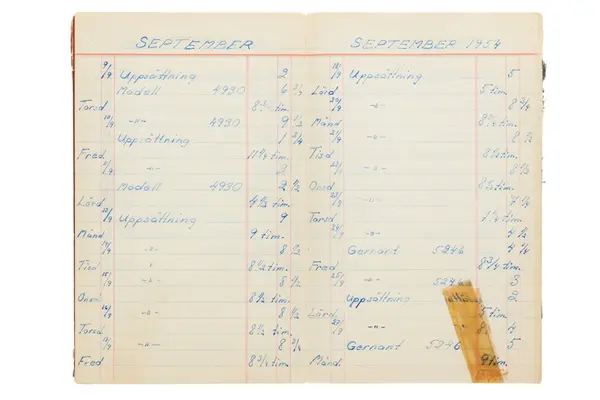 SEPTEMBER
9/9 Uppsättning 2
Modell 4930 6 3/4
Torsd. 8 3/4 tim.
10/9 -"- 4930 9 1/2
Uppsättning 1 3/4
Fred. 11 1/4 tim.
11/9 -"- 2
Modell 4930 2 1/2
Lörd. 4 1/2 tim.
13/9 Uppsättning 9
Månd. 9 tim.
14/9 -"- 8 1/2
Tisd. 8 1/2 tim.
15/9 -"- 8 1/2
Onsd. 8 1/2 tim.
16/9 -"- 8 1/2
Torsd. 8 1/2 tim.
17/9 -"- 8 3/4
Fred 8 3/4 tim.
SEPTEMBER 1954
18/9 Uppsättning 5
Lörd. 5 tim.
20/9 -"- 8 3/4
Månd. 8 3/4 tim.
21/9 -"- 8 1/2
Tisd. 8 1/2 tim.
-"- 8 1/2
Onsd. 8 1/2 tim.
23/9 -"- 7 1/4
Torsd. 7 1/4 tim.
24/9 -"- 4 1/2
Garnant 5246 4 1/4
Fred. 8 3/4 tim.
25/9 -"- 5246 3
Uppsättning 2
Lörd. 5 tim.
27/9 -"- 4
Garnant 5246 5
Månd. 9 tim.